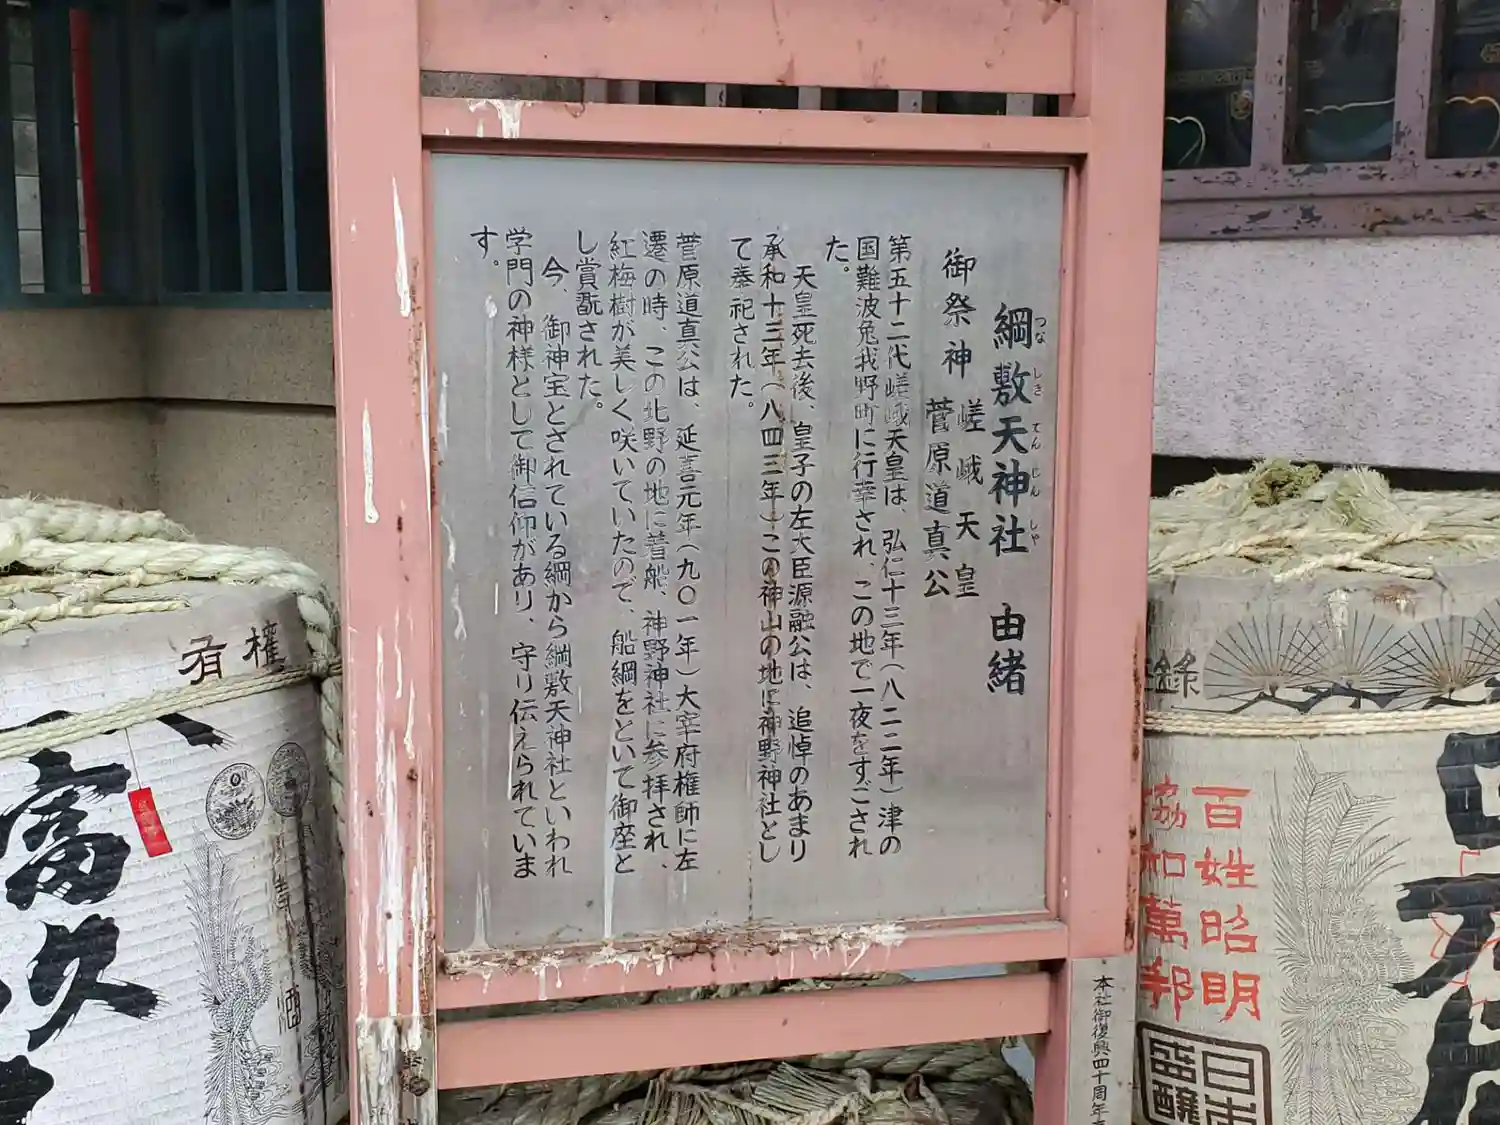 綱敷天神社 由緒
つなしきてんじんしや
御祭神 嵯峨天皇
菅原道真公
第五十二代嵯峨天皇は、弘仁十三年(八二二年)津の
国難波兎我野町に行幸され、この地で一夜をすごされ
た。
天皇死去後、皇子の左大臣源融公は、追悼のあまり
承和十三年(八四三年)この神山の地に神野神社とし
て奉祀された。
菅原道真公は、延喜元年(九〇一年)大宰府権師に左
遷の時、この北野の地に着船、神野神社に参拝され、
紅梅樹が美しく咲いていたので、船綱をといて御座と
し賞翫された。
今、御神宝とされている綱から綱敷天神社といわれ
学門の神様として御信仰があり、守り伝えられていま
す。
本社御復興四十周年
有權
富久
百姓昭明
協和萬邦
日本
盛醸